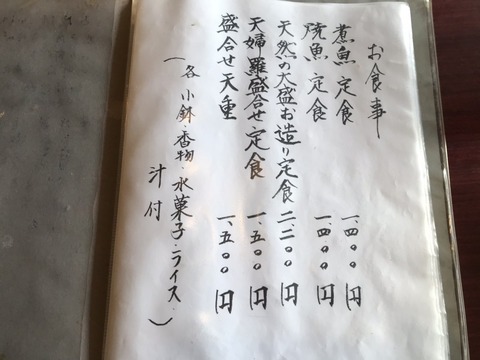 お食事
煮魚定食 一、四〇〇円
焼魚定食 一、四〇〇円
天然の大盛お造り定食 二、二〇〇円
天婦羅盛合せ定食 一、五〇〇円
盛合せ天重 一、五〇〇円
(各小鉢・香物・水菓子・ライス・汁付)